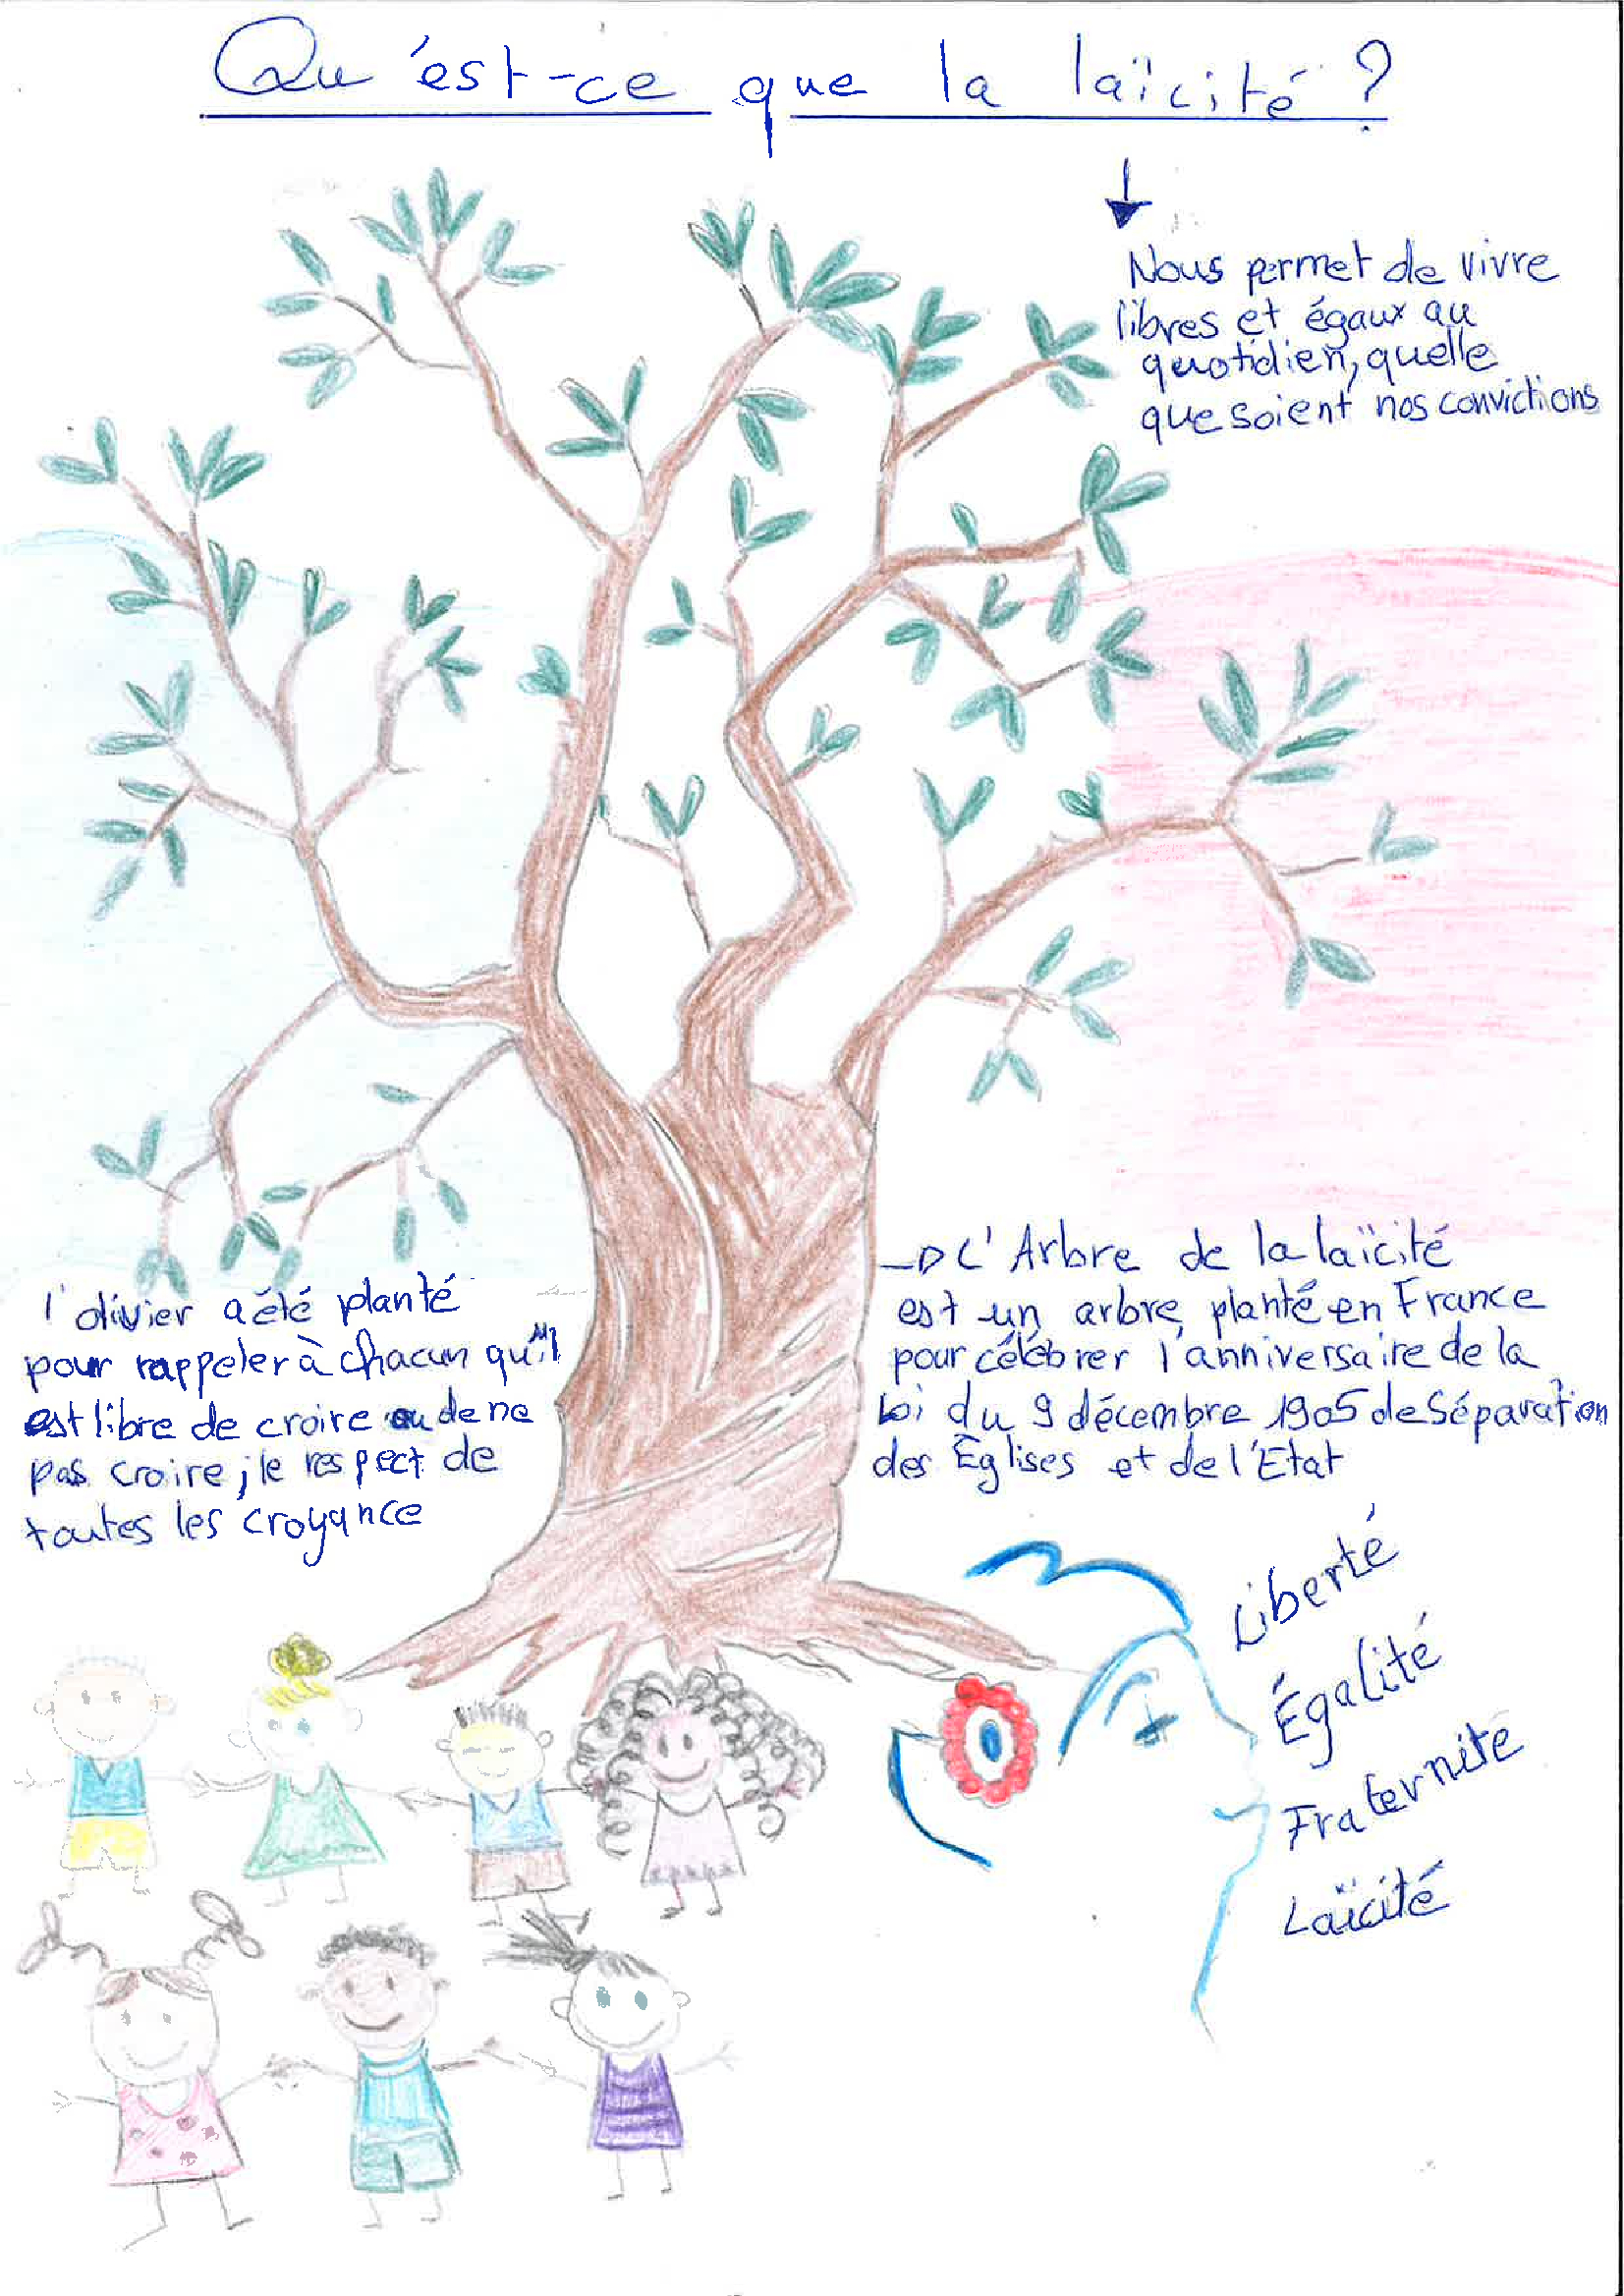 Qu'est-ce que la laïcité ?
Nous permet de vivre
libres et égaux au
quotidien, quelle
que soient nos convictions
l'olivier a été planté
pour rappeler à chacun qu'il
est libre de croire ou de ne
pas croire ; le respect de
toutes les croyance
L'Arbre de la laïcité
est un arbre planté en France
pour célébrer l'anniversaire de la
loi du 9 décembre 1905 de Séparation
des Églises et de l'Etat
Liberté
Égalité
Fraternité
Laïcité